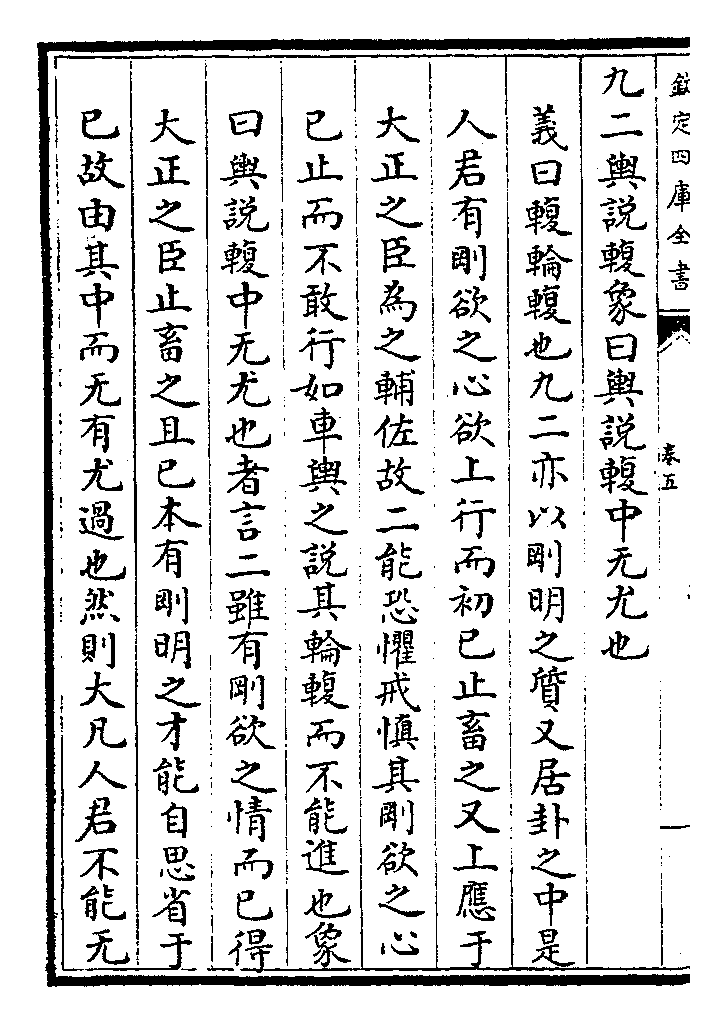 欽定四庫全書
卷五
九二輿說輹象曰輿說輹中无尤也
義曰輹輪輹也九二亦以剛明之質又居卦之中是
人君有剛欲之心欲上行而初已止畜之又上應于
大正之臣為之輔佐故二能恐懼戒慎其剛欲之心
已止而不敢行如車輿之說其輪輹而不能進也象
曰輿說輹中无尤也者言二雖有剛欲之情而已得
大正之臣止畜之且已本有剛明之才能自思省于
已故由其中而无有尤過也然則大凡人君不能无